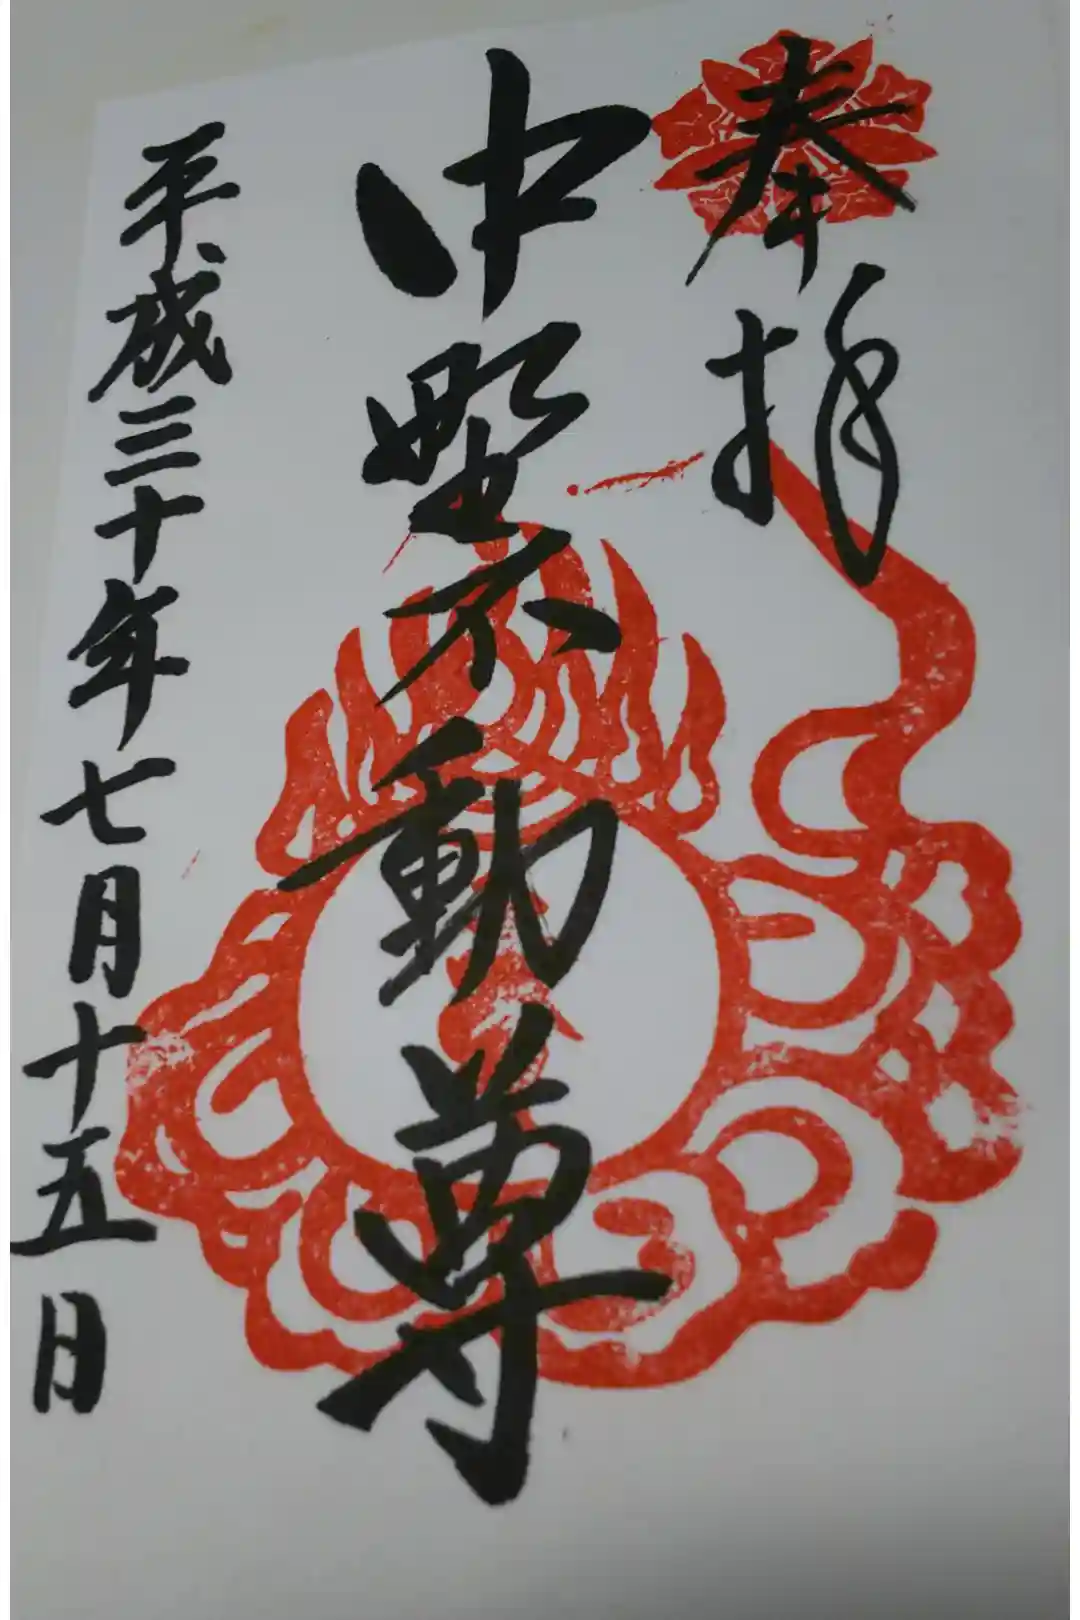 奉拝
中野不動尊
平成三十年七月十五日